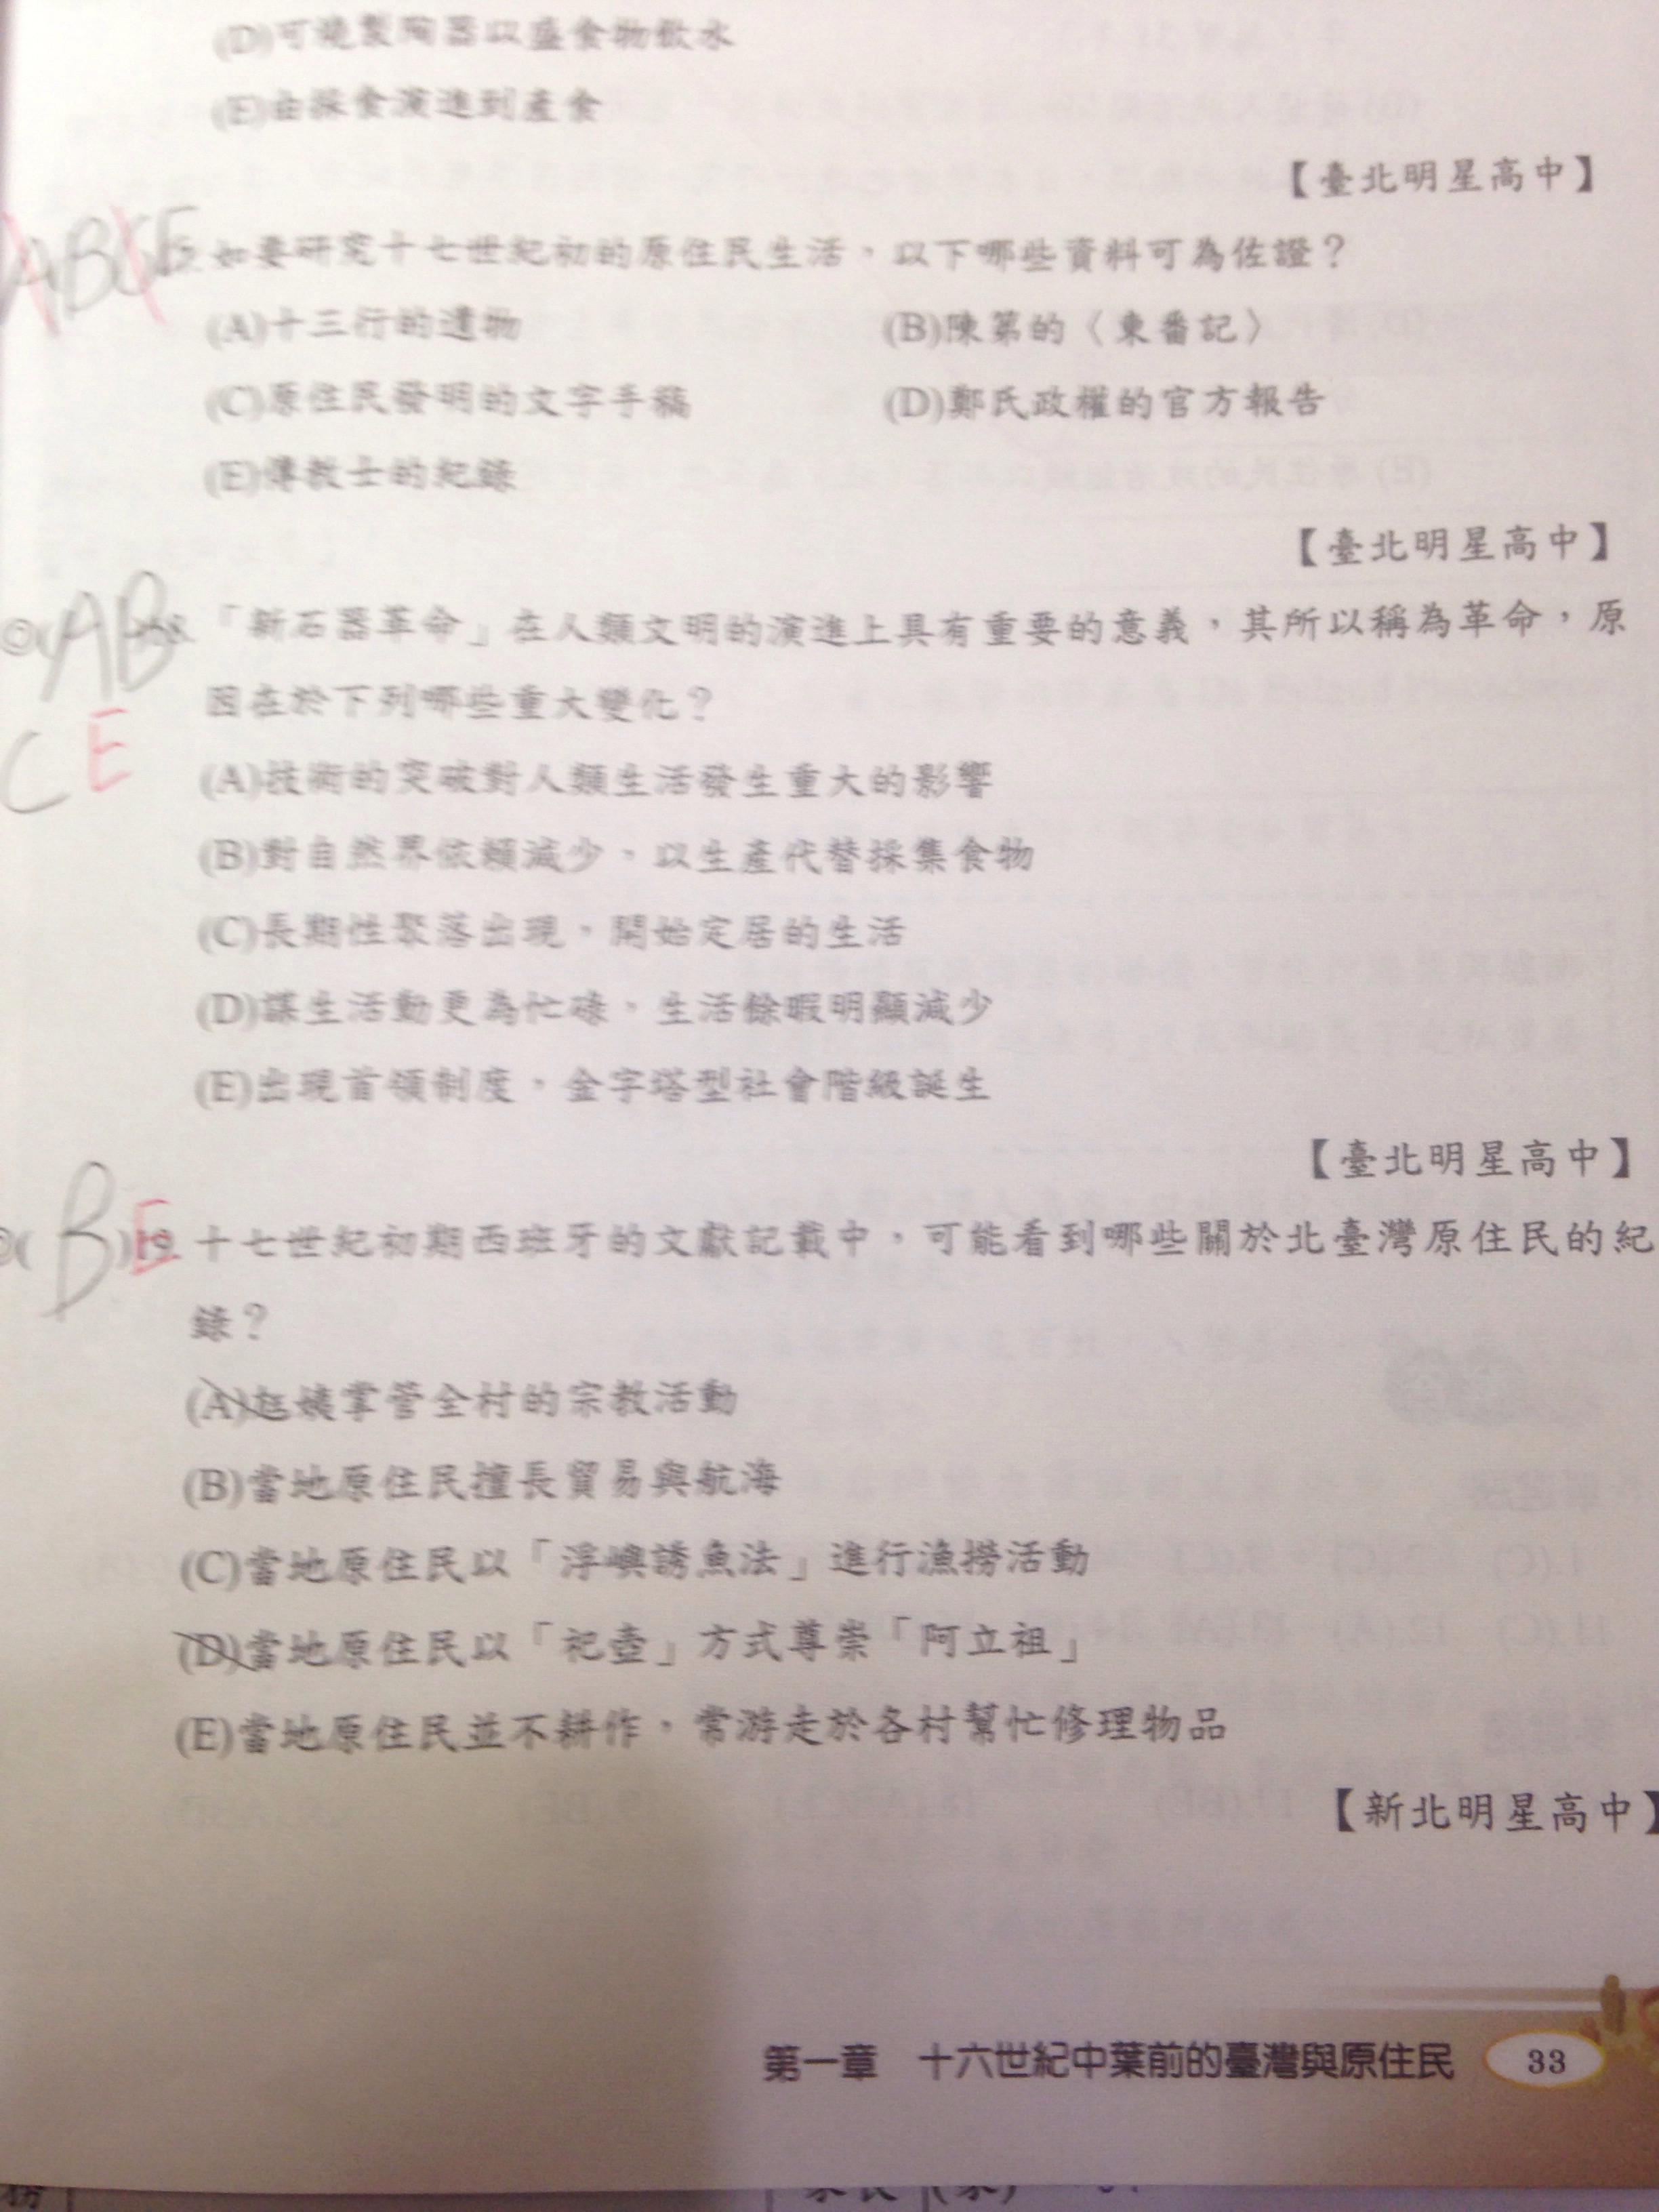 (D)可燒製陶器以盛食物飲水
(E)由採食演進到產食
【臺北明星高中】
ABCE 如要研究十七世紀初的原住民生活，以下哪些資料可為佐證？
(A)十三行的遺物 (B)陳第的〈東番記〉
(C)原住民發明的文字手稿 (D)鄭氏政權的官方報告
(E)傳教士的紀錄
【臺北明星高中】
AB 「新石器革命」在人類文明的演進上具有重要的意義，其所以稱為革命，原
因在於下列哪些重大變化？
CE
(A)技術的突破對人類生活發生重大的影響
(B)對自然界依賴減少，以生產代替採集食物
(C)長期性聚落出現，開始定居的生活
(D)謀生活動更為忙碌，生活餘暇明顯減少
(E)出現首領制度，金字塔型社會階級誕生
【臺北明星高中】
( B )E 十七世紀初期西班牙的文獻記載中，可能看到哪些關於北臺灣原住民的紀
錄？
(A)尪姨掌管全村的宗教活動
(B)當地原住民擅長貿易與航海
(C)當地原住民以「浮嶼誘魚法」進行漁撈活動
(D)當地原住民以「祀壺」方式尊崇「阿立祖」
(E)當地原住民並不耕作，常游走於各村幫忙修理物品
【新北明星高中】
第一章 十六世紀中葉前的臺灣與原住民 33